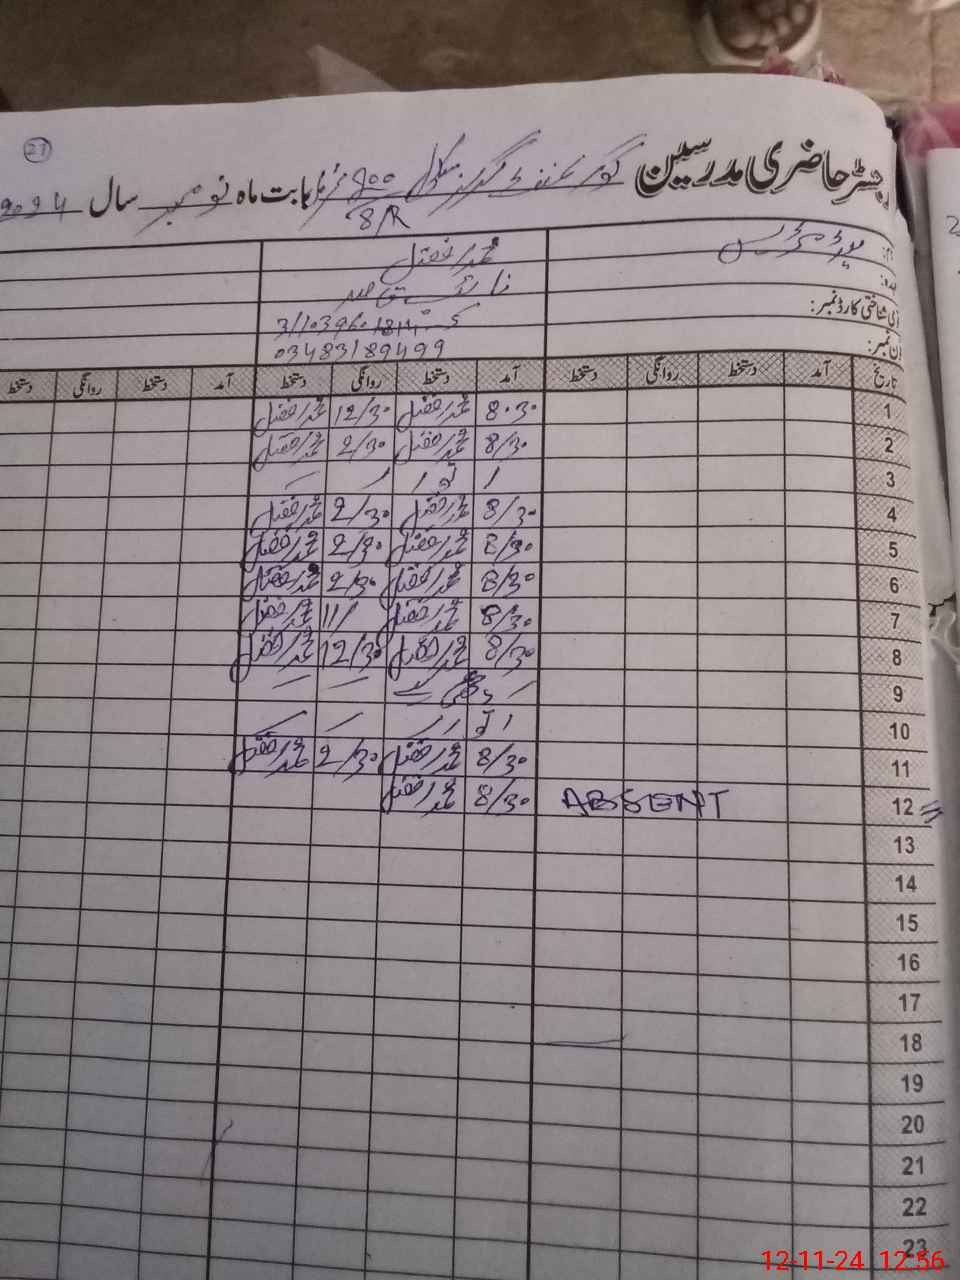 27
رجسٹر حاضری مدرسین گورنمنٹ گرلز سکول 200 بابت ماہ نومبر سال 2024
8/R
نام:
عہدہ:
قومی شناختی کارڈ نمبر:
فون نمبر: 03483189499
تاریخ آمد دستخط روانگی دستخط آمد دستخط روانگی دستخط آمد دستخط روانگی دستخط
1 8.30 محمد افضل 12/30 محمد افضل
2 8/30 محمد افضل 2/30 محمد افضل
3
4 8/30 محمد افضل 2/30 محمد افضل
5 8/30 محمد افضل 2/30 محمد افضل
6 8/30 محمد افضل 2/30 محمد افضل
7 8/30 محمد افضل 11/ محمد افضل
8 8/30 محمد افضل 12/30 محمد افضل
9
10
11 8/30 محمد افضل 2/30 محمد افضل
12 ABSENT 8/30 محمد افضل
13
14
15
16
17
18
19
20
21
22
23
12-11-24 12:56